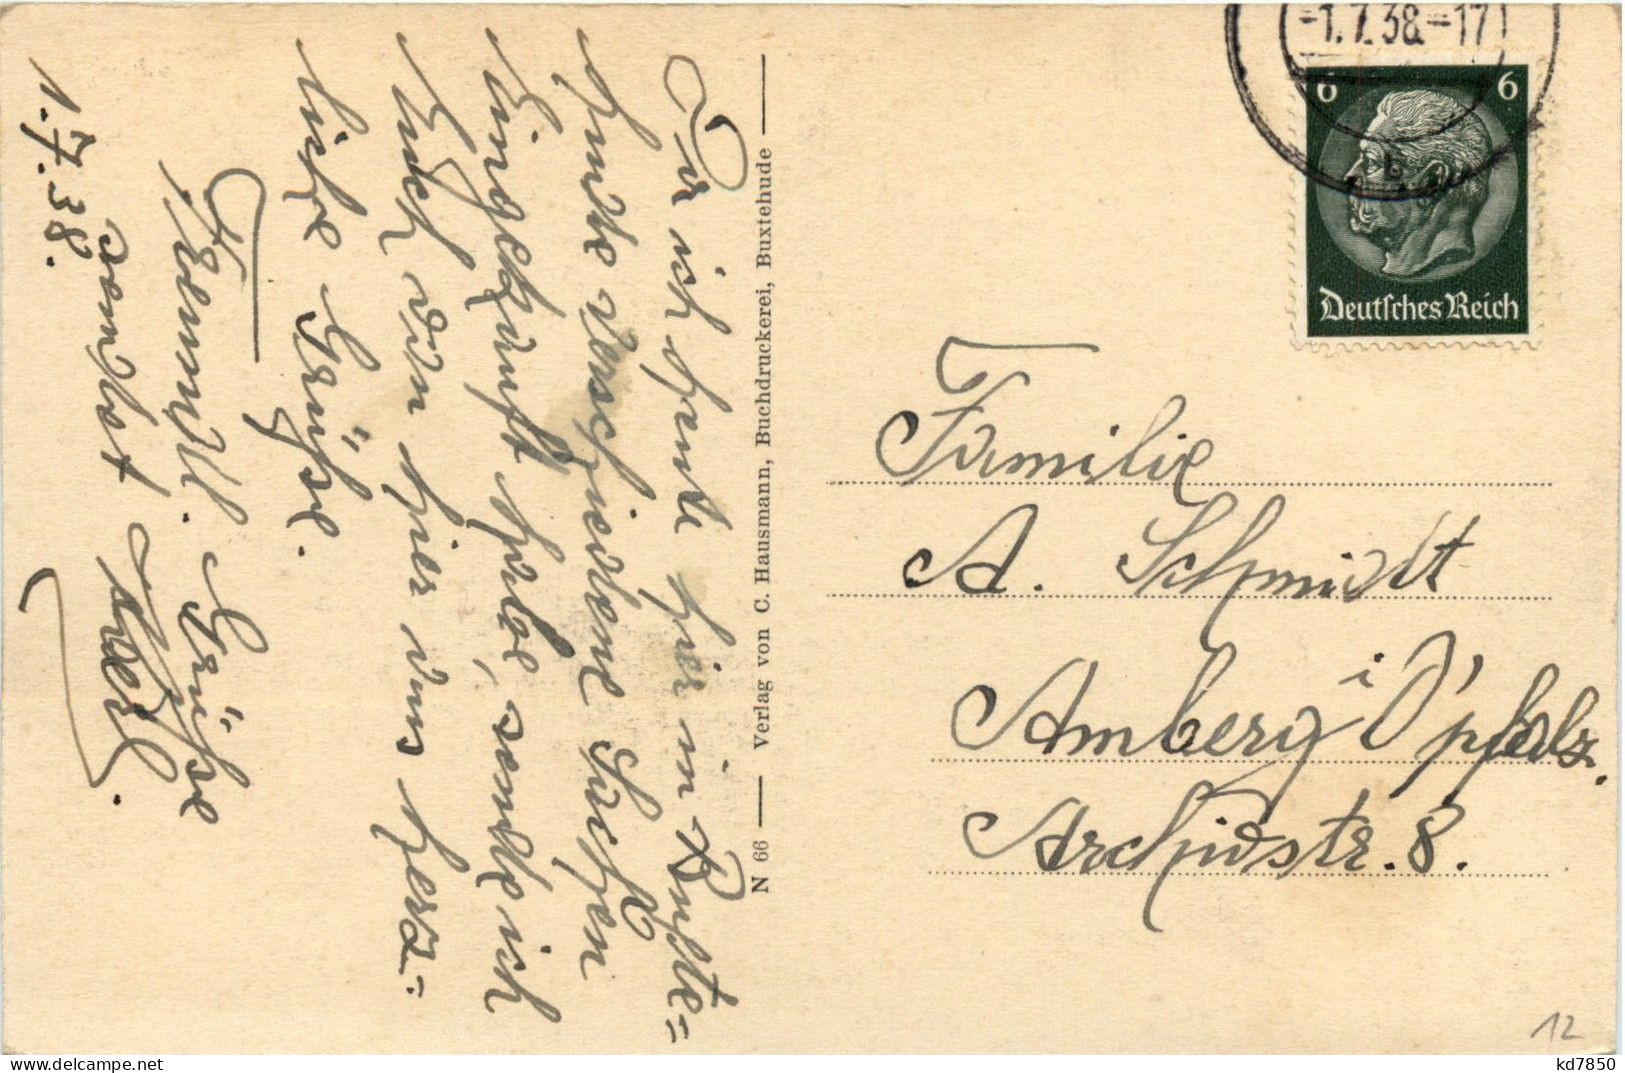 -1.7.38.-17
6 6
Deutsches Reich
Da ich heute hier in Buxte=
hude verschiedene Sachen
eingekauft habe, sende ich
Euch von hier aus herz=
liche Grüße.
Freundl. Grüße
sendet
1.7.38.
N 66 — Verlag von C. Hausmann, Buchdruckerei, Buxtehude —
Familie
A. Schmidt
Amberg i O'pfalz.
Archivstr. 8.
12
kd7850